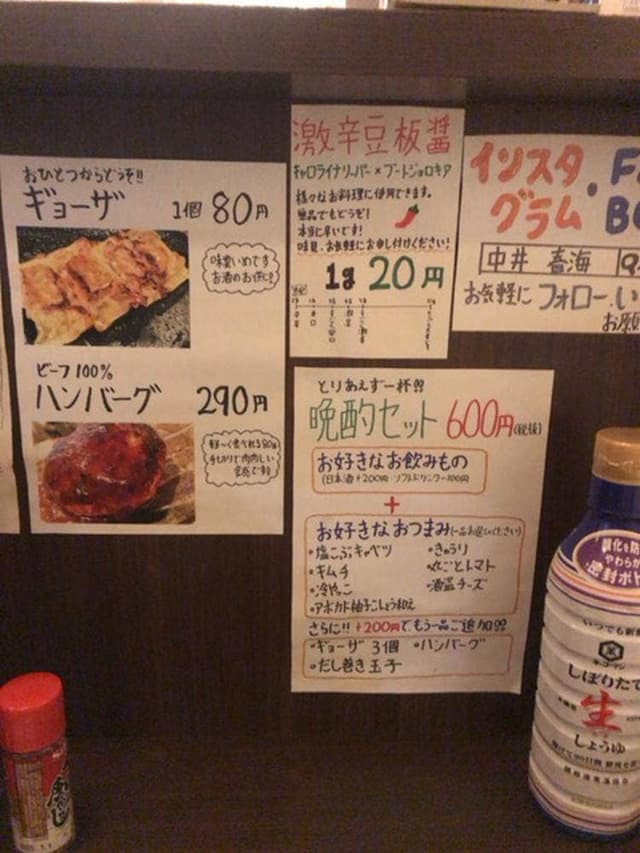 おひとつからどうぞ!!
ギョーザ
1個 80円
ビーフ100%
ハンバーグ 290円
激辛豆板醤
キャロライナリーパー×ブートジョロキア
様々なお料理に使用できます。
単品でもどうぞ!
本当に辛いです!
味見、お気軽にお申し付けください!
1g 20円
インスタ
グラム
中井 春海
お気軽にフォロー、い
お願
とりあえず一杯!!
晩酌セット 600円(税抜)
お好きなお飲みもの
(日本酒+200円・ソフトドリンク-100円
+
お好きなおつまみ(一品お選びください)
・塩こぶキャベツ ・きゅうり
・キムチ ・丸ごとトマト
・冷やっこ ・酒盗チーズ
・アボカド柚子こしょう和え
さらに!!+200円でもう一品ご追加
・ギョーザ 3個 ・ハンバーグ
・だし巻き玉子
いつでも新鮮
しぼりたて
生
しょうゆ